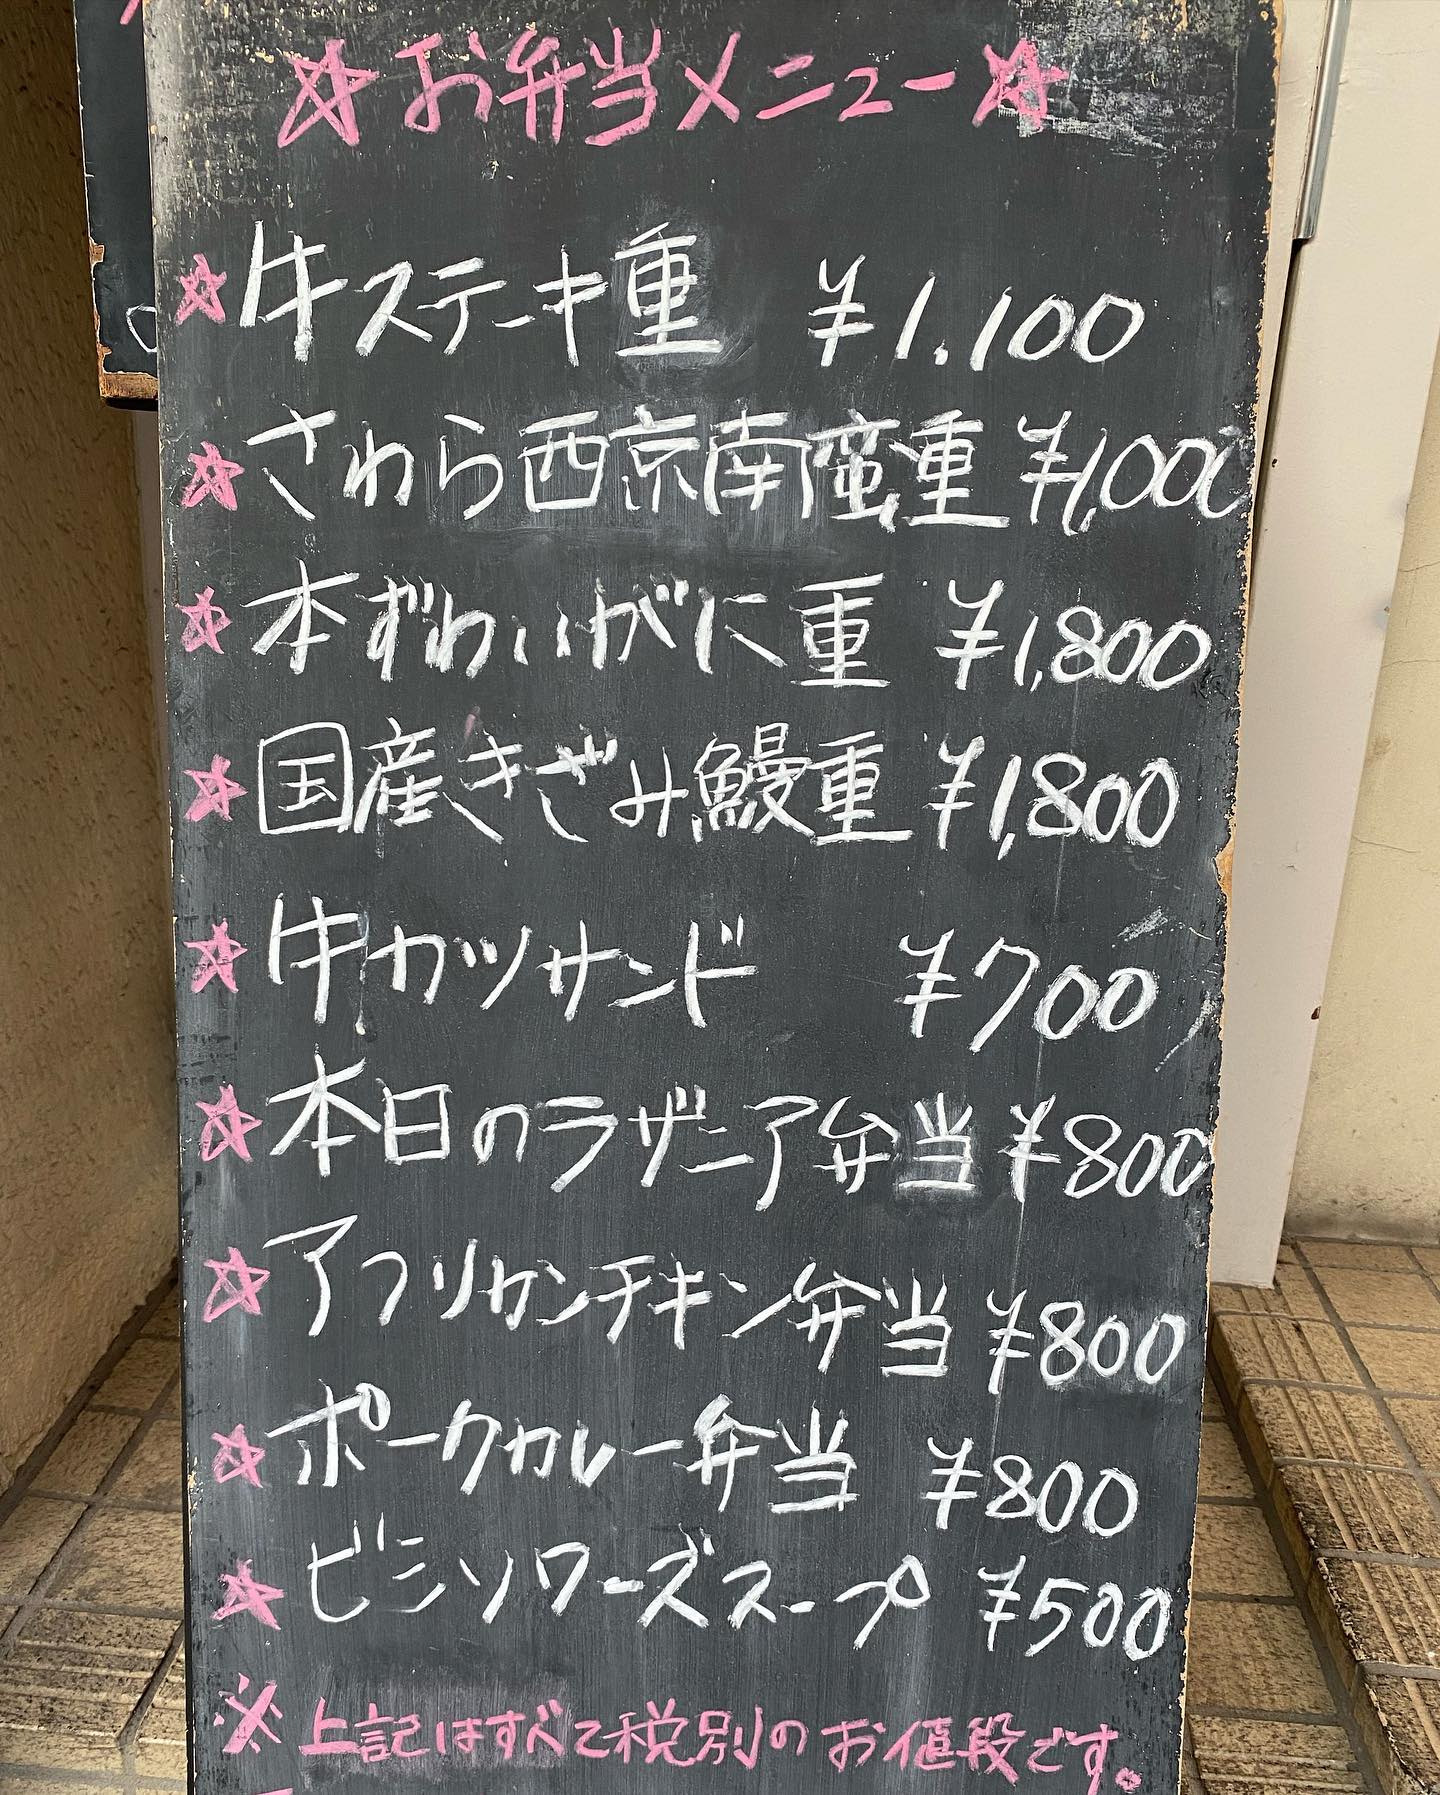 ☆お弁当メニュー☆
☆牛ステーキ重 ¥1.100
☆さわら西京南蛮重 ¥1,000
☆本ずわいがに重 ¥1,800
☆国産きざみ鰻重 ¥1,800
☆牛カツサンド ¥700
☆本日のラザニア弁当 ¥800
☆アフリカンチキン弁当 ¥800
☆ポークカレー弁当 ¥800
☆ビシソワーズスープ ¥500
※上記はすべて税別のお値段です。